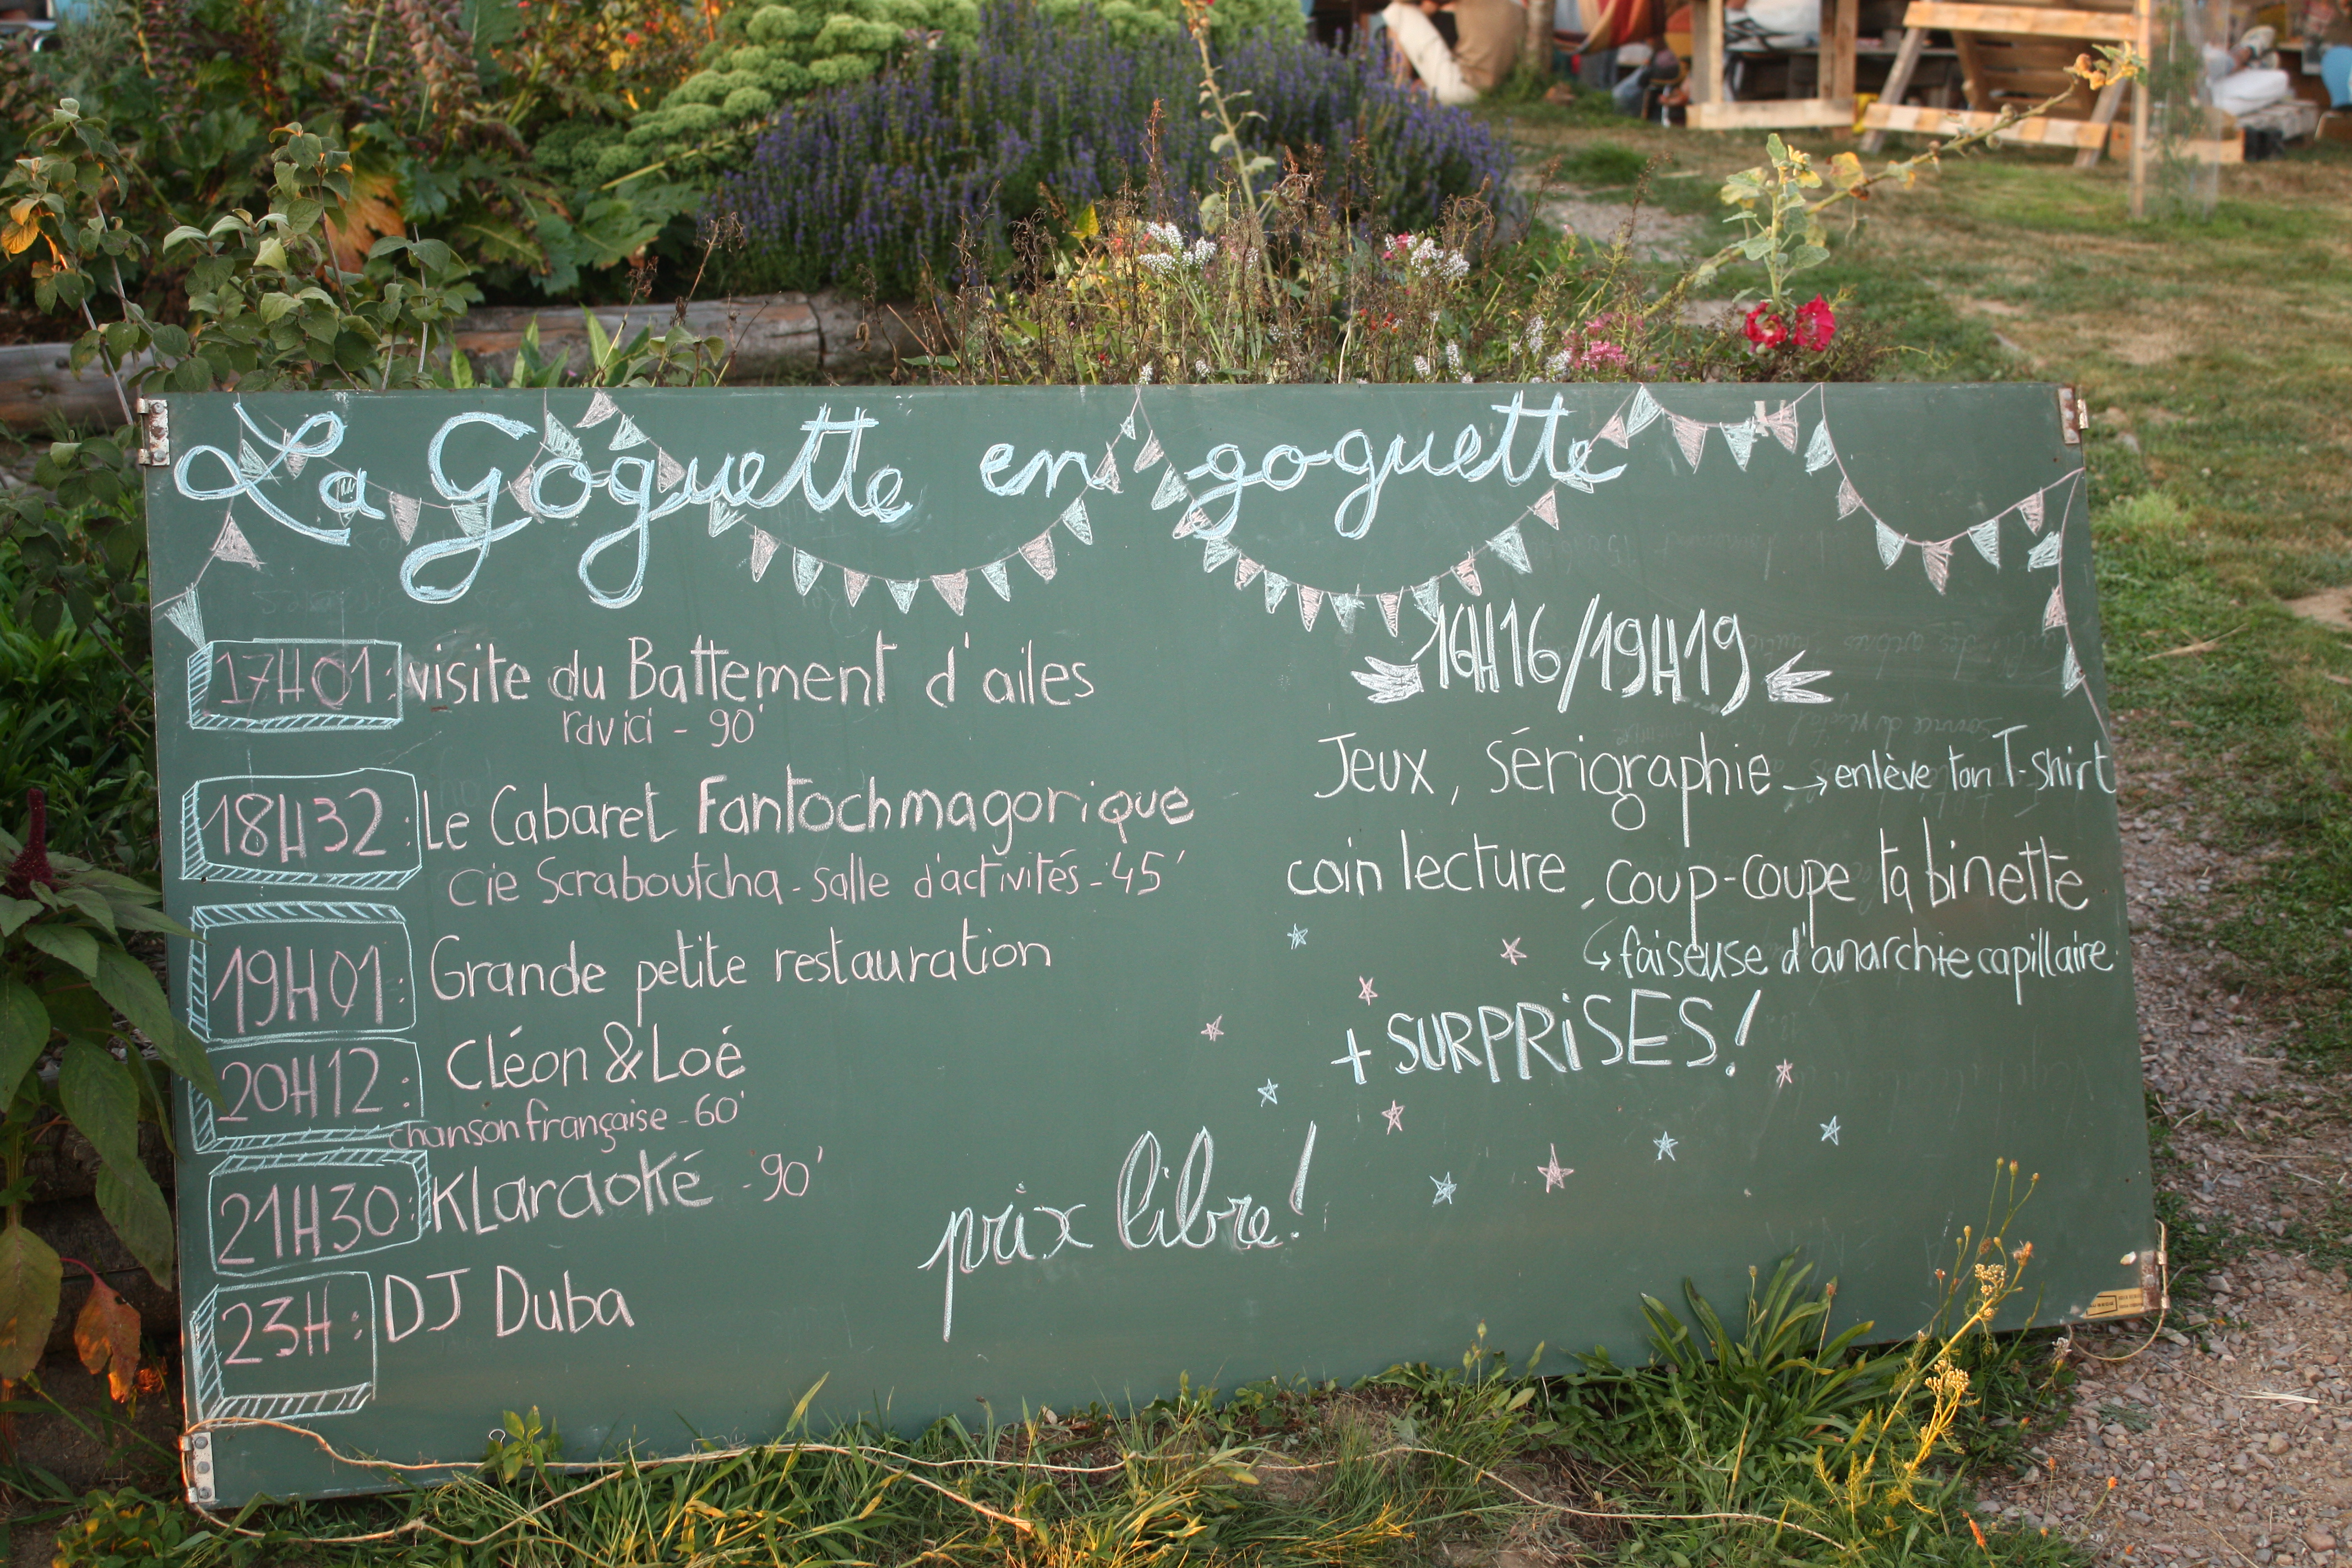 La Goguette en goguette
17H01 : visite du Battement d'ailes
rdv ici - 90'
18H32 : Le Cabaret Fantochmagorique
Cie Scraboutcha - salle d'activités - 45'
19H01 : Grande petite restauration
20H12 : Cléon & Loé
chanson française - 60'
21H30 : KLaraoké - 90'
23H : DJ Duba
16H16/19H19
Jeux, sérigraphie → enlève ton T-shirt
coin lecture, coup-coupe ta binette
↳ faiseuse d'anarchie capillaire
+ SURPRiSES !
prix libre !